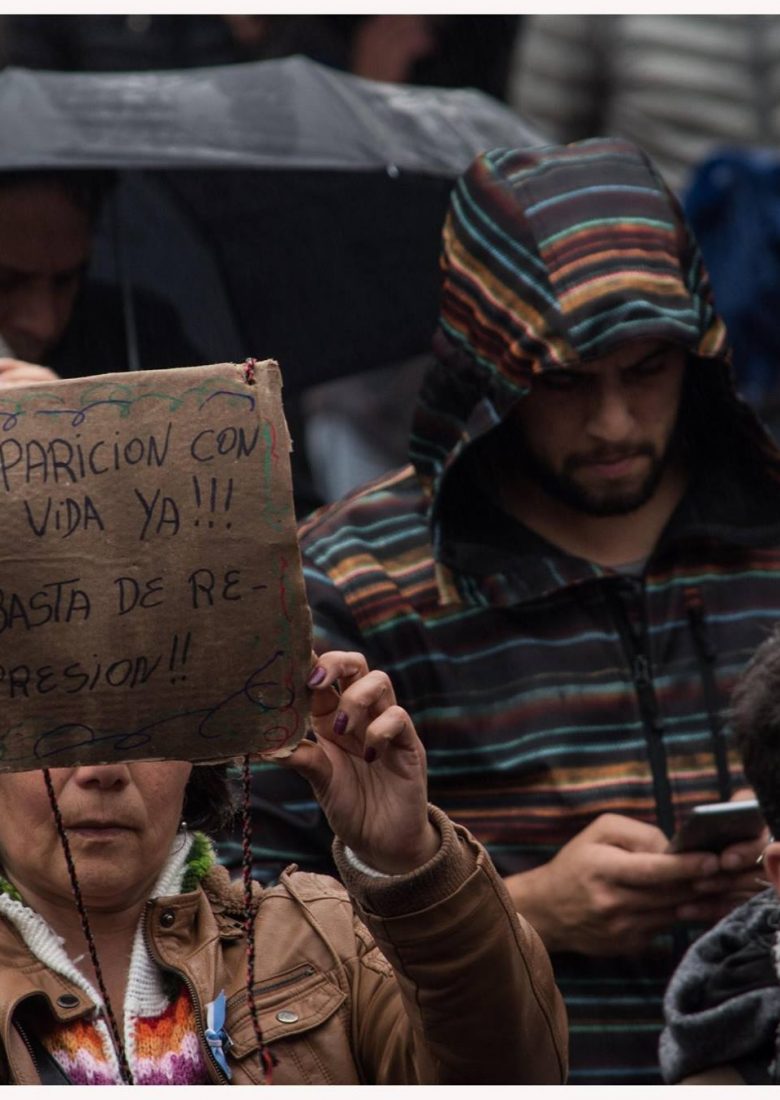 PARICION CON
VIDA YA!!!
BASTA DE RE-
PRESION!!